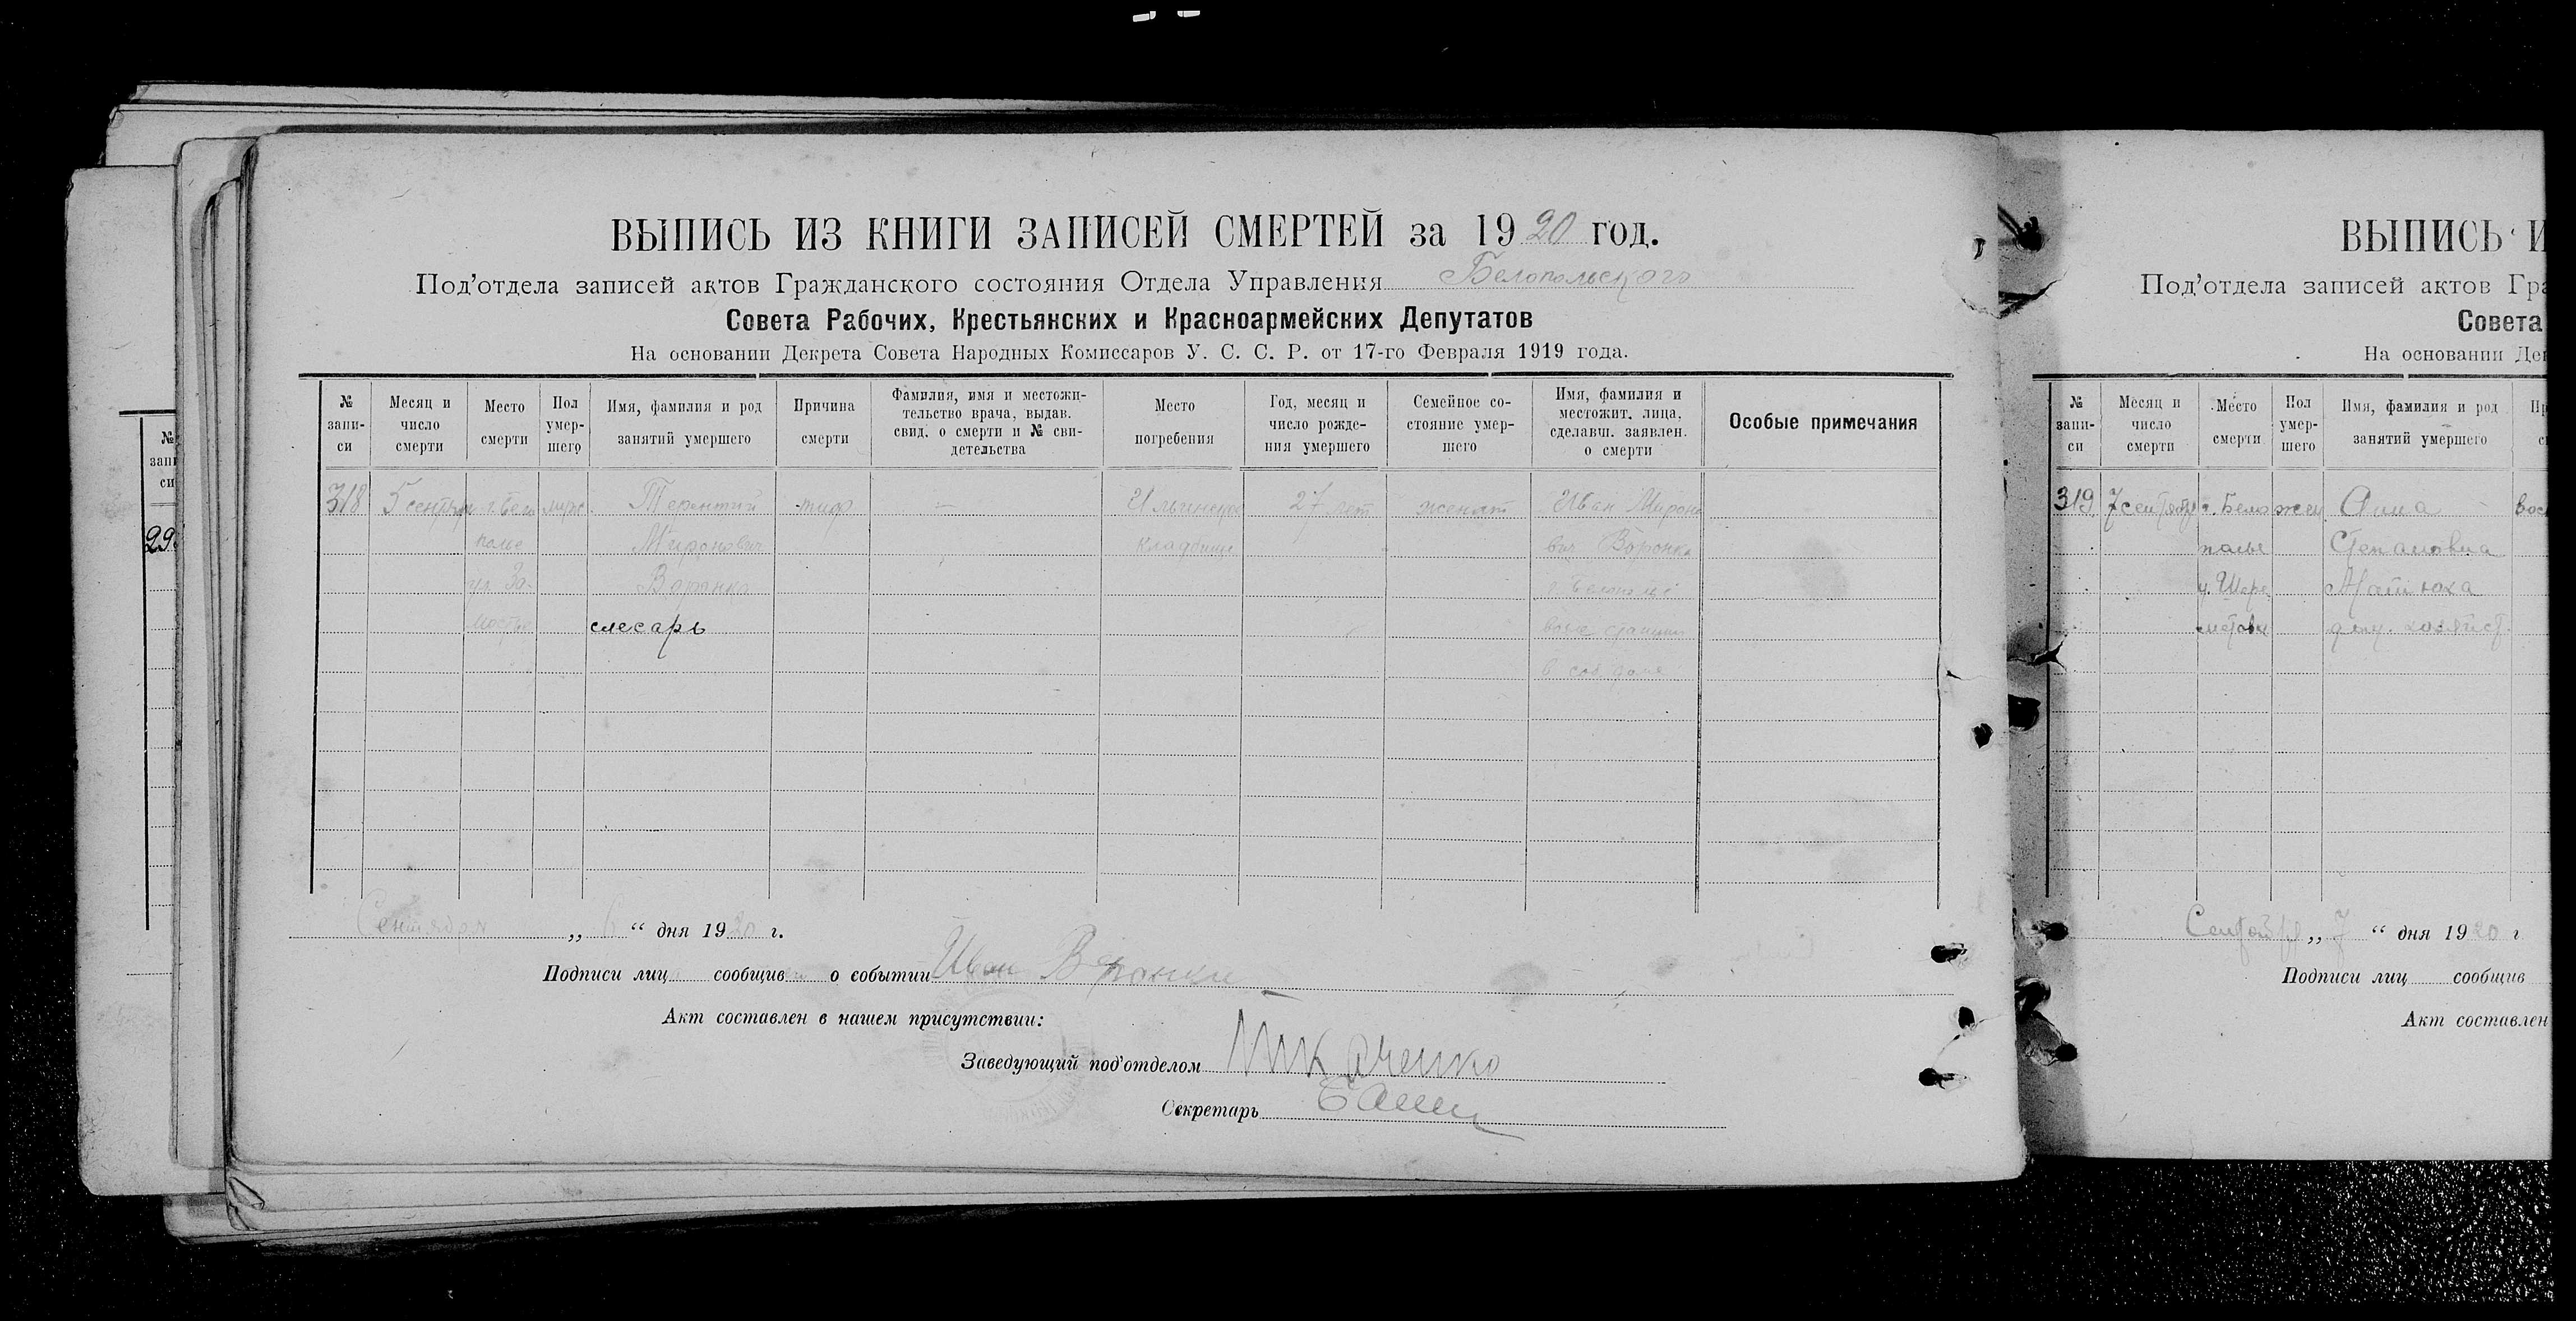 ВЫПИСЬ ИЗ КНИГИ ЗАПИСЕЙ СМЕРТЕЙ за 1920 год.
Под’отдела записей актов Гражданского состояния Отдела Управления Белопольского
Совета Рабочих, Крестьянских и Красноармейских Депутатов
На основании Декрета Совета Народных Комиссаров У. С. С. Р. от 17-го Февраля 1919 года.
№ запи-
си
Месяц и
число
смерти
Место
смерти
Пол
умер-
шего
Имя, фамилия и род
занятий умершего
Причина
смерти
Фамилия, имя и местожи-
тельство врача, выдав.
свид. о смерти и № сви-
детельства
Место
погребения
Год, месяц и
число рожде-
ния умершего
Семейное со-
стояние умер-
шего
Имя, фамилия и
местожит. лица,
сделавш. заявлен.
о смерти
Особые примечания
318
5 сентября
г. Бело
полье
ул. За-
муж.
Терентий
Миронович
Воронко
слесарь
тиф
—
Ильинское
кладбище
27 лет
женат
Иван Мироно
вич Воронко
г. Белополье
возле станции
Сентября „ 6 “ дня 1920 г.
Подписи лиц сообщив о событии Иван
Акт составлен в нашем присутствии:
Заведующий под’отделом Ткаченко
Секретарь
ВЫПИСЬ И
Под’отдела записей актов Гра
Совета
На основании Дек
№
запи-
си
Месяц и
число
смерти
Место
смерти
Пол
умер-
шего
Имя, фамилия и род
занятий умершего
319
7 сентября
г. Бело
полье
жен
Анна
Степановна
Матюха
дом. хозяйст.
вос
Сентября „ 7 “ дня 1920 г
Подписи лиц сообщив
Акт составлен
№
запи
си
29